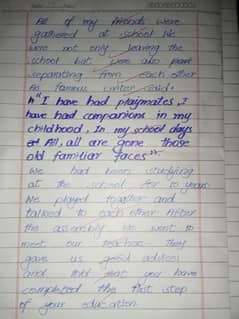 All of my friends were
gathered at school We
were not only leaving the
school but were also
separating from each other
As famous writer said:
"I have had playmates, I
have had companions in my
childhood, In my school days
All, all are gone those
old familiar faces".
We had been studying
at the school for 10 years.
We played together and
talked to each other. After
the assembly We went to
meet our teachers. They
gave us good advices
and told that you have
completed the first step
of your education